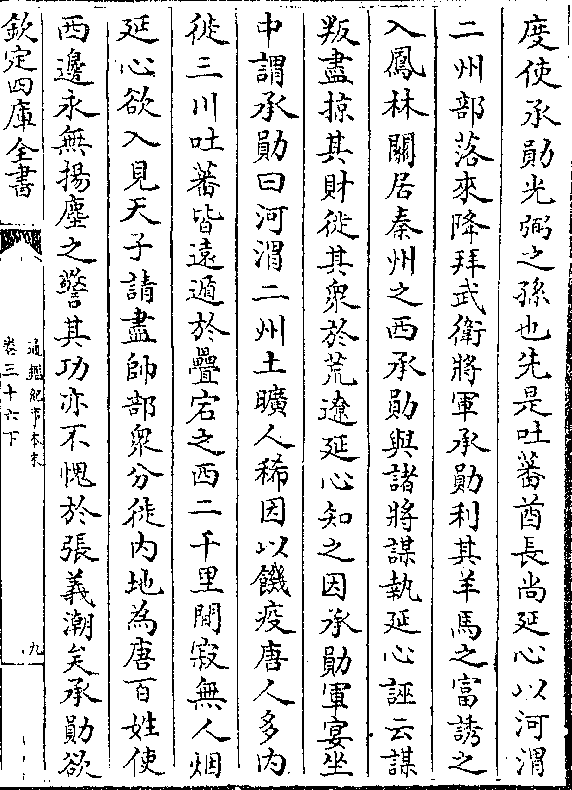 度使承勛光弼之孫也先是吐蕃酋長尚延心以河渭
二州部落來降拜武衛將軍承勛利其羊馬之富誘之
入鳳林關居秦州之西承勛與諸將謀執延心誣云謀
叛盡掠其財徙其衆於荒遼延心知之因承勛軍宴坐
中謂承勛曰河渭二州土曠人稀因以饑疫唐人多内
徙三川吐蕃皆遠遁於疊宕之西二千里間寂無人烟
延心欲入見天子請盡帥部衆分徙内地為唐百姓使
西邊永無揚塵之警其功亦不愧於張義潮矣承勛欲
欽定四庫全書
通鑑紀事本末
卷三十六下
九